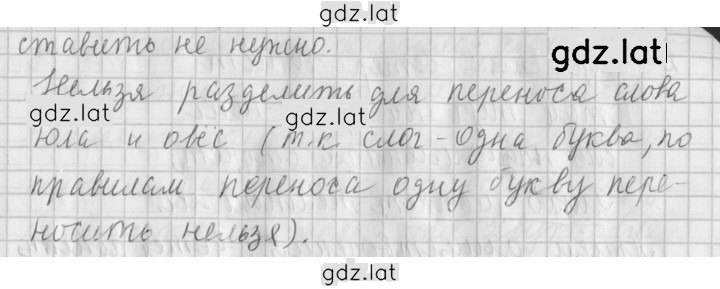 gdz.lat
ставить не нужно.
gdz.lat
Нельзя разделить для переноса слова
gdz.lat
gdz.lat
юла и овёс (т.к. слог - одна буква, по
правилам переноса одну букву пере-
носить нельзя).
gdz.lat